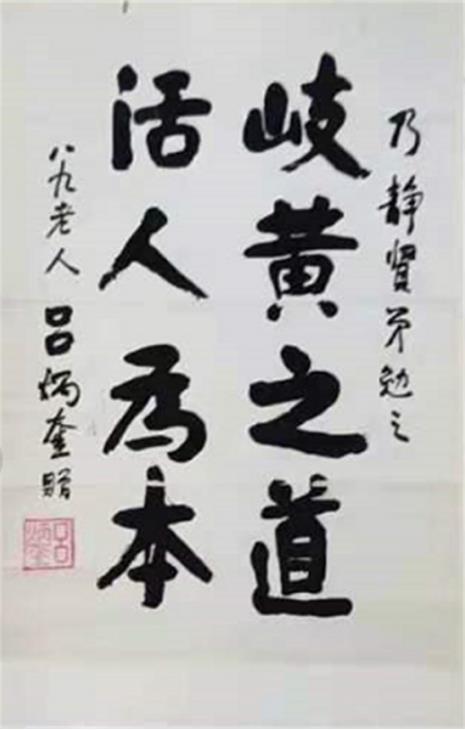 乃静贤弟勉之
岐黄之道
活人为本
八九老人吕炳奎赠
吕炳奎